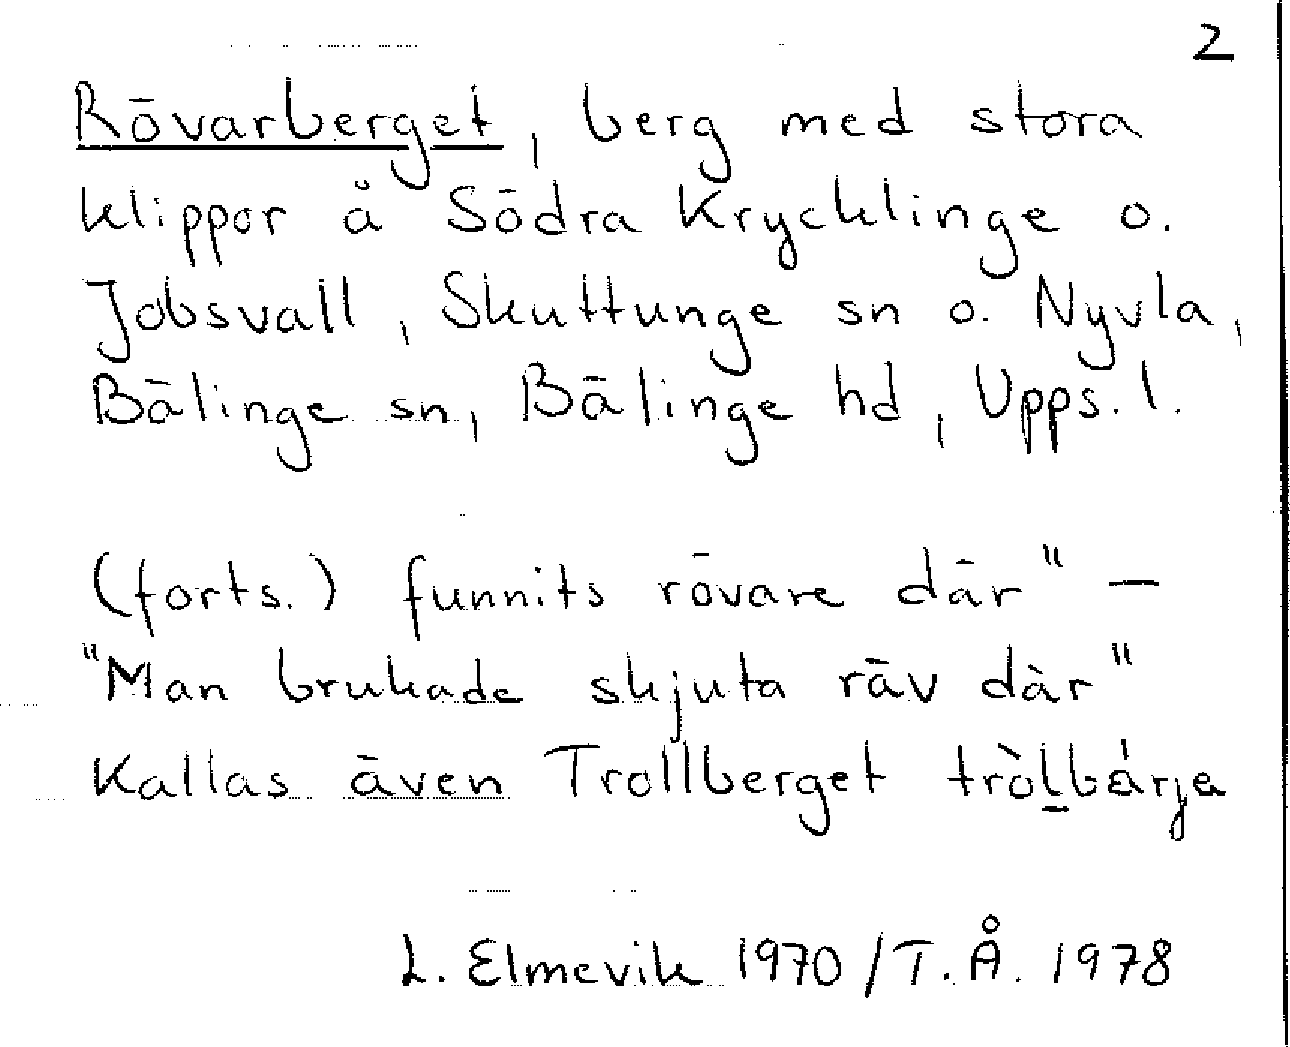 2
Rövarberget, berg med stora
klippor å Södra Krycklinge o.
Jobsvall, Skuttunge sn o. Nyvla,
Bälinge sn, Bälinge hd, Upps. l.
(forts.) funnits rövare där" —
"Man brukade skjuta räv där"
Kallas även Trollberget
L. Elmevik 1970/T.Å. 1978